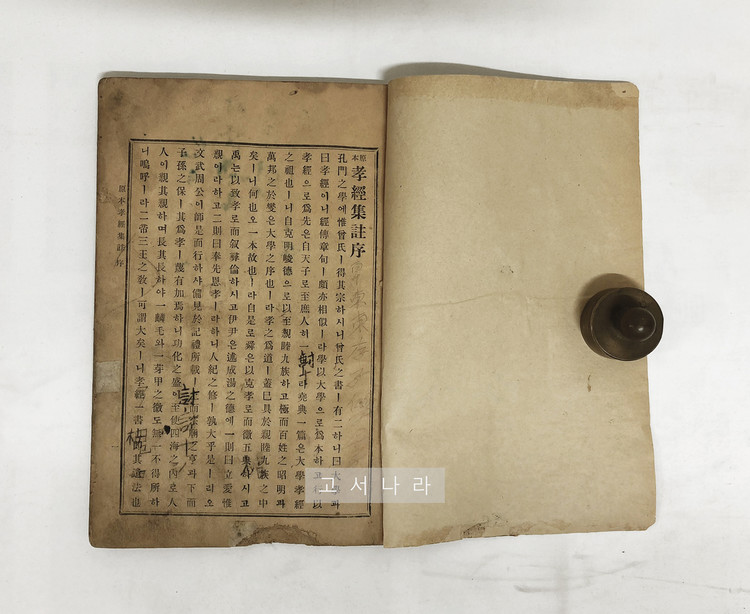 原本孝經集註序
孔門之學에惟曾氏ㅣ得其宗하시니曾氏之書ㅣ有二하니曰大學과
曰孝經이니經傳章句ㅣ頗亦相似ㅣ라學以大學으로爲本하고
孝經으로爲先은自天子로至庶人히一ㅣ라堯典一篇은大學孝經
之祖也ㅣ니自克明峻德으로以至親睦九族하고極而百姓之昭明과
萬邦之於變은大學之序也ㅣ라孝之爲道ㅣ蓋已具於親睦九族之中
矣ㅣ니何也오一本故也ㅣ라自是로舜은以克孝로而徽五典하시고
禹는以致孝로而叙彝倫하시고伊尹은述成湯之德에一則曰立愛惟
親이라하고二則曰奉先思孝ㅣ라하니人紀之修ㅣ孰大乎是ㅣ리오
文武周公이師是而行하샤備見於記禮所載ㅣ而之享과下而
子孫之保ㅣ其爲孝ㅣ蔑有加焉하니功化之盛이至使四海之內로人
人이親其親하며長其長하야一鱗毛와一芽甲之微도無一不得所하
니嗚呼ㅣ라二帝三王之敎ㅣ可謂大矣ㅣ니孝經一書其遺法也
原本孝經集註 序
고서나라